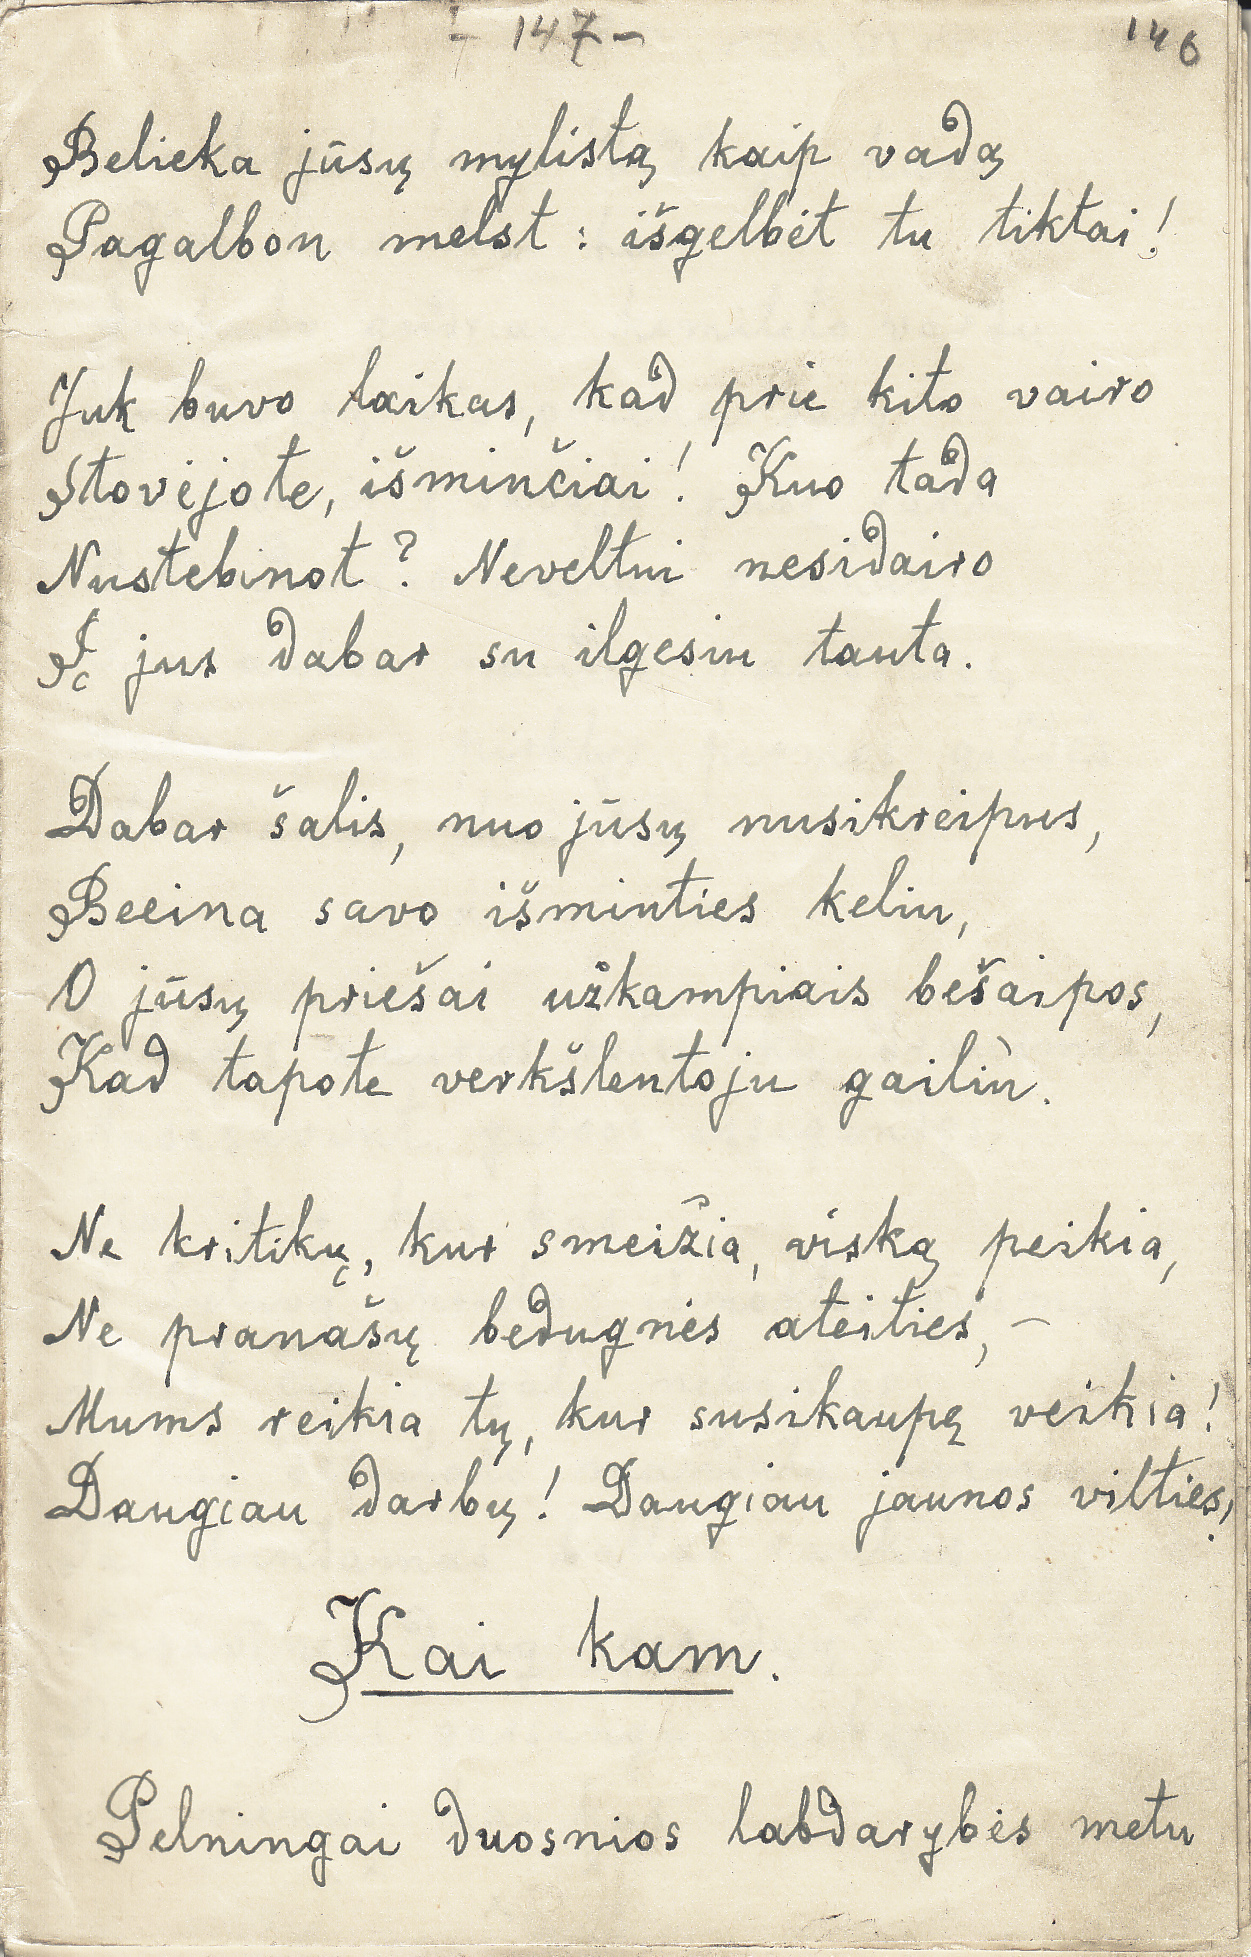 - 147 -
146
Belieka jūsų mylistą kaip vadą
Pagalbon melst: išgelbėt tu tiktai!
Juk buvo laikas, kad prie kito vairo
Stovėjote, išminčiai! Kuo tada
Nustebinot? Neveltui nesidairo
Į jus dabar su ilgesiu tauta.
Dabar šalis, nuo jūsų nusikreipus,
Beeina savo išminties keliu,
O jūsų priešai užkampiais bešaipos,
Kad tapote verkšlentoju gailiù.
Ne kritikų, kur smeižia, viską peikia,
Ne pranašų bedugnės ateities, –
Mums reikia tų, kur susikaupę veikia!
Daugiau darbų! Daugiau jaunos vilties!
Kai kam.
Pelningai duosnios labdarybės metu